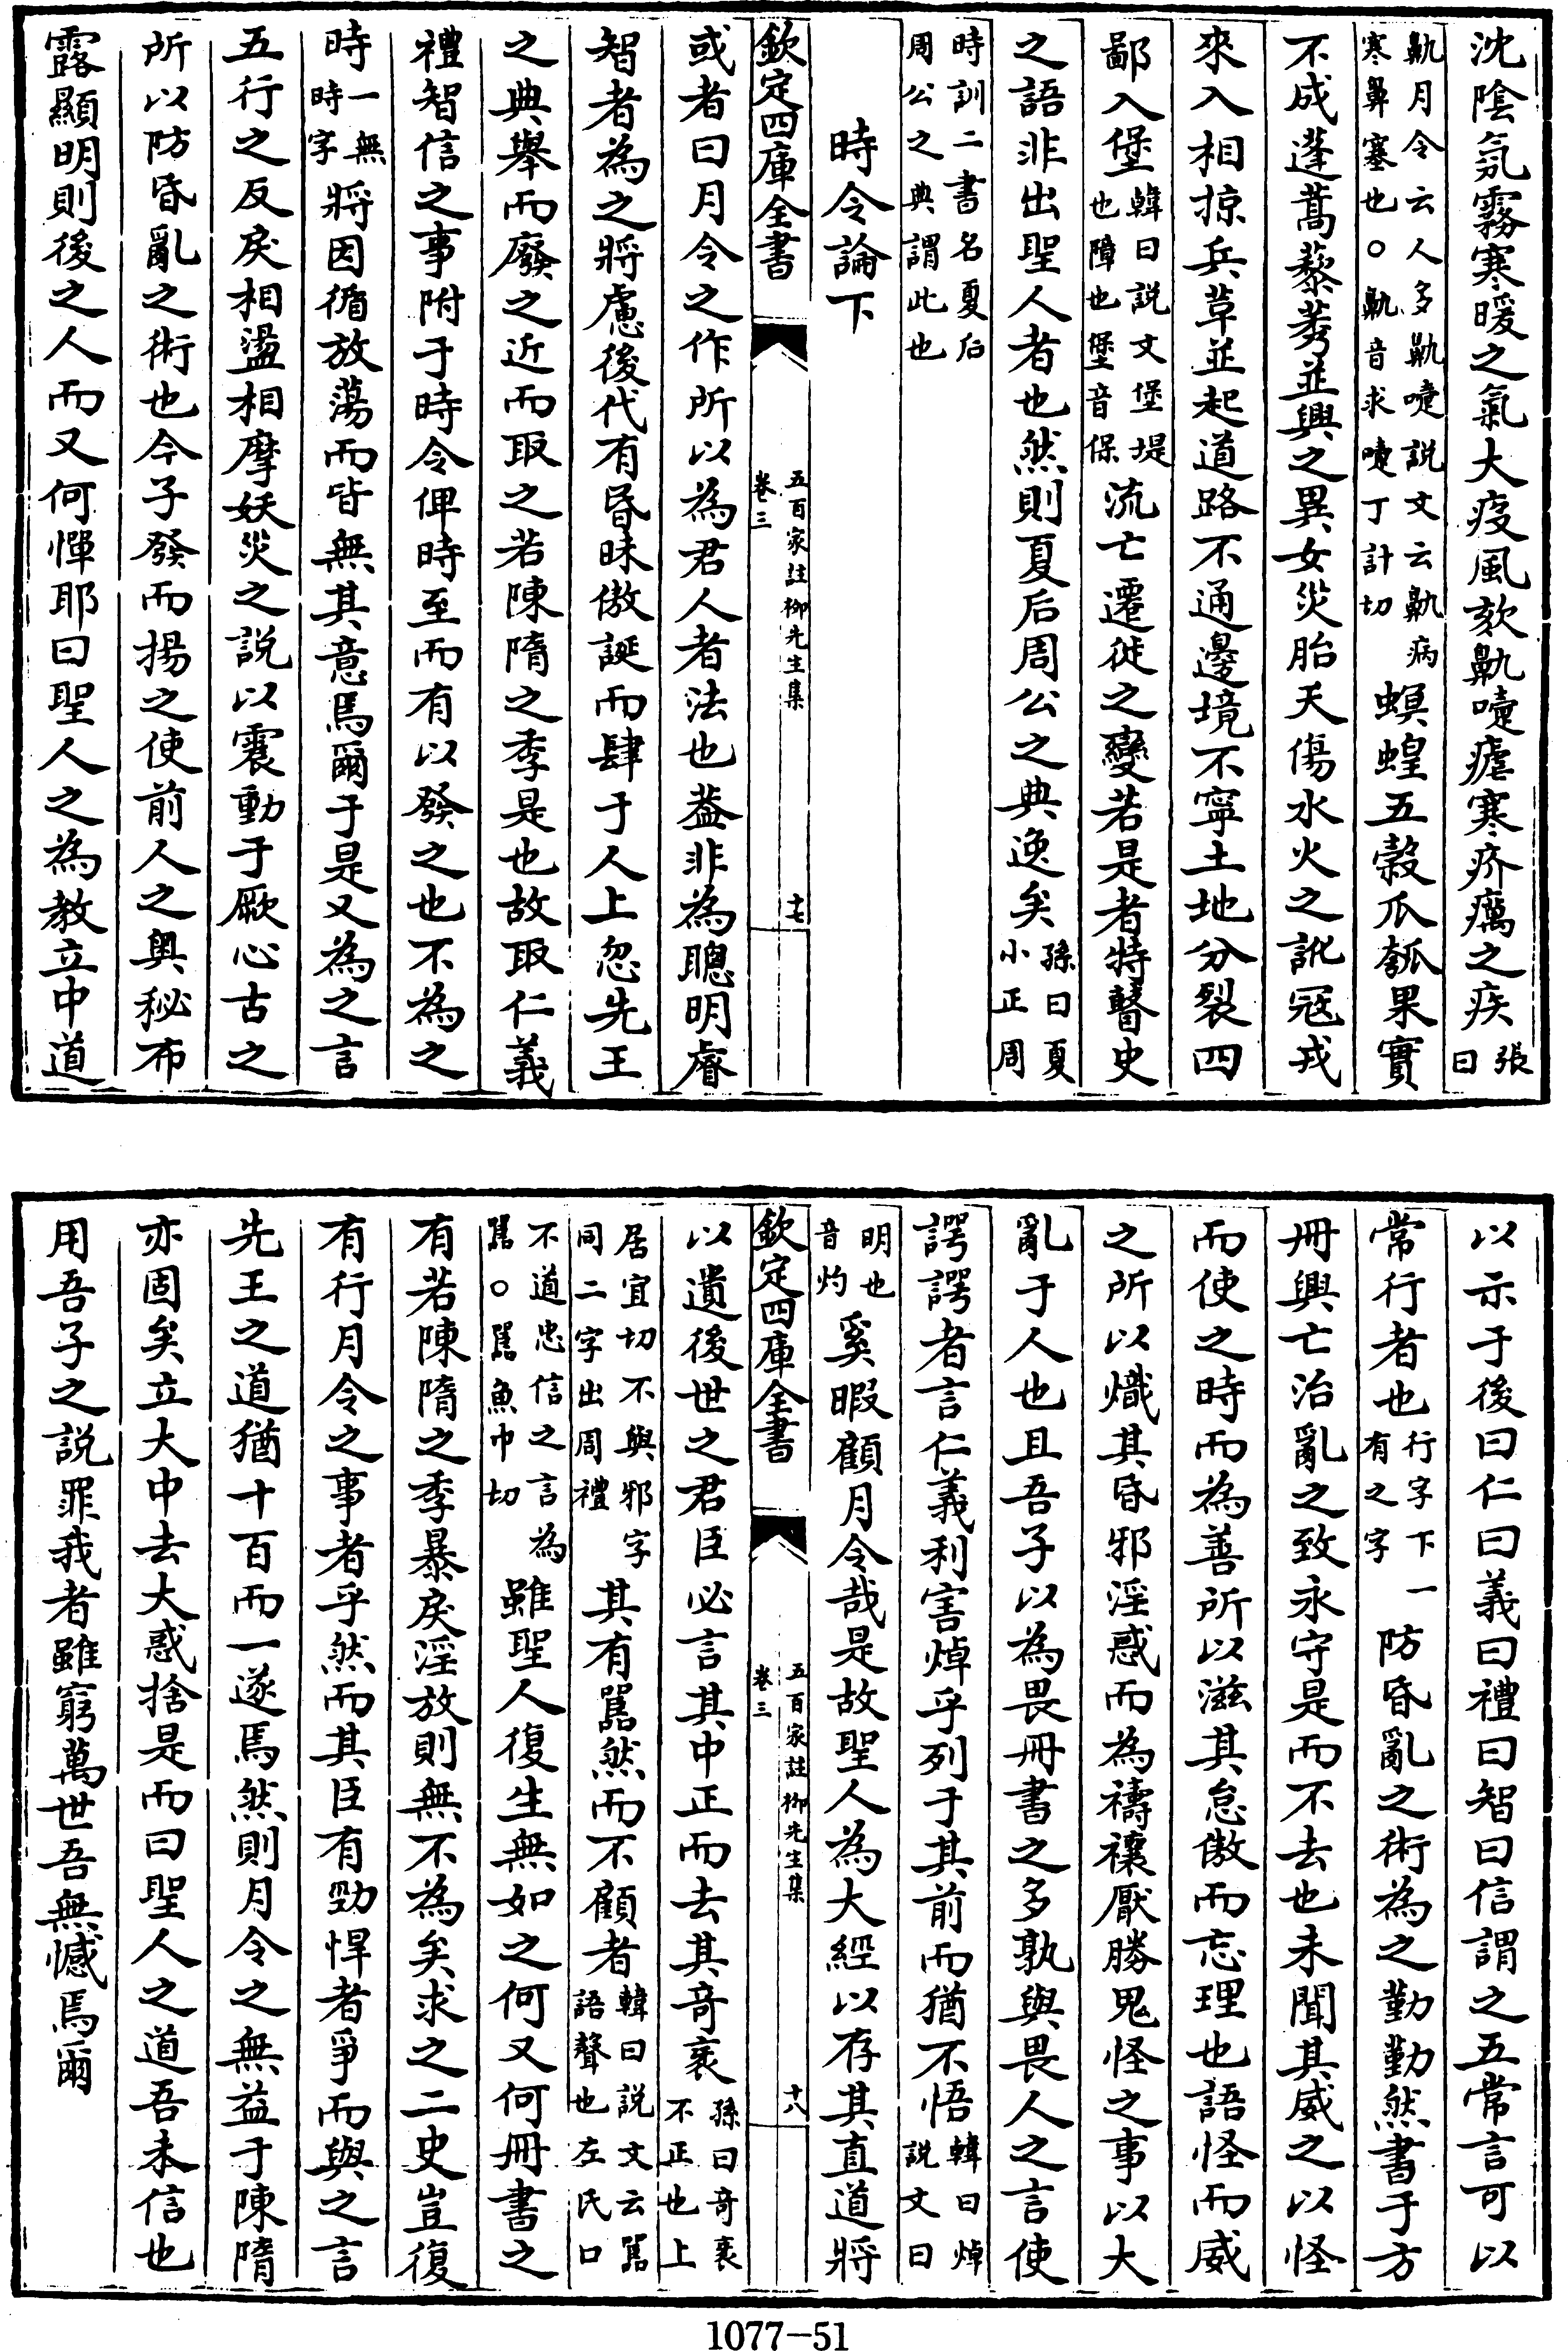 沈陰氛霧寒暖之氣大疫風欬鼽嚏瘧寒疥癘之疾張曰
鼽月令云人多鼽嚏説文云鼽病寒鼻塞也○鼽音求嚏丁計切螟蝗五榖爪瓠果實
不成蓬蒿藜莠並興之異女災胎夭傷水火之訛冦戎
來入相掠兵草並起道路不通邊境不寧土地分裂四
鄙入堡韓曰説文堡堤也障也堡音保流亡遷徙之變若是者特瞽史
之語非出聖人者也然則夏后周公之典逸矣孫曰夏小正周
時訓二書名夏后周公之典謂此也
時令論下
欽定四庫全書
五百家註柳先生集
卷三
十七
或者曰月令之作所以為君人者法也葢非為聰明睿
智者為之將慮後代有昬昧傲誕而肆于人上忽先王
之典舉而廢之近而取之若陳隋之季是也故取仁義
禮智信之事附于時令俾時至而有以發之也不為之
時一無時字將因循放蕩而皆無其意焉爾于是又為之言
五行之反戾相盪相摩妖災之説以震動于厥心古之
所以防昏亂之術也今子發而揚之使前人之奥秘布
露顯明則後之人而又何憚耶曰聖人之為教立中道
以示于後曰仁曰義曰禮曰智曰信謂之五常言可以
常行者也行字下一有之字防昏亂之術為之勤勤然書于方
冊興亡治亂之致永守是而不去也未聞其威之以怪
而使之時而為善所以滋其怠傲而忘理也語怪而威
之所以熾其昏邪淫惑而為禱禳厭勝鬼怪之事以大
亂于人也且吾子以為畏冊書之多孰與畏人之言使
諤諤者言仁義利害焯乎列于其前而猶不悟韓曰焯説文曰
明也音灼奚暇顧月令哉是故聖人為大經以存其直道將
欽定四庫全書
五百家註柳先生集
卷三
十八
以遺後世之君臣必言其中正而去其竒衺孫曰竒衺不正也上
居宜切不與邪字同二字出周禮其有嚚然而不顧者韓曰説文云嚚語聲也左氏口
不道忠信之言為嚚○嚚魚巾切雖聖人復生無如之何又何冊書之
有若陳隋之季暴戾淫放則無不為矣求之二史豈復
有行月令之事者乎然而其臣有勁悍者爭而與之言
先王之道猶十百而一遂焉然則月令之無益于陳隋
亦固矣立大中去大惑捨是而曰聖人之道吾未信也
用吾子之説罪我者雖窮萬世吾無憾焉爾
1077-51